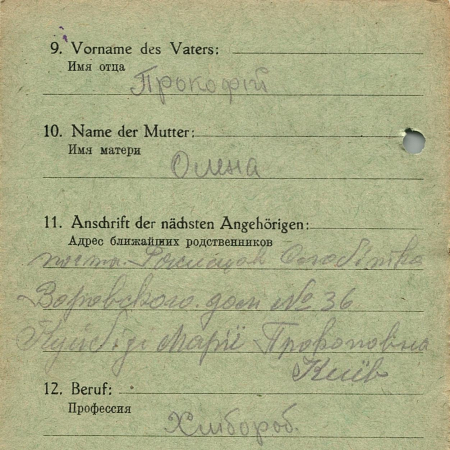 9. Vorname des Vaters:
Имя отца
Прокофій
10. Name der Mutter:
Имя матери
Олена
11. Anschrift der nächsten Angehörigen:
Адрес ближайших родственников
Воровского. дом № 36
Марії Прокоповна
Київ
12. Beruf:
Профессия
Хлібороб.